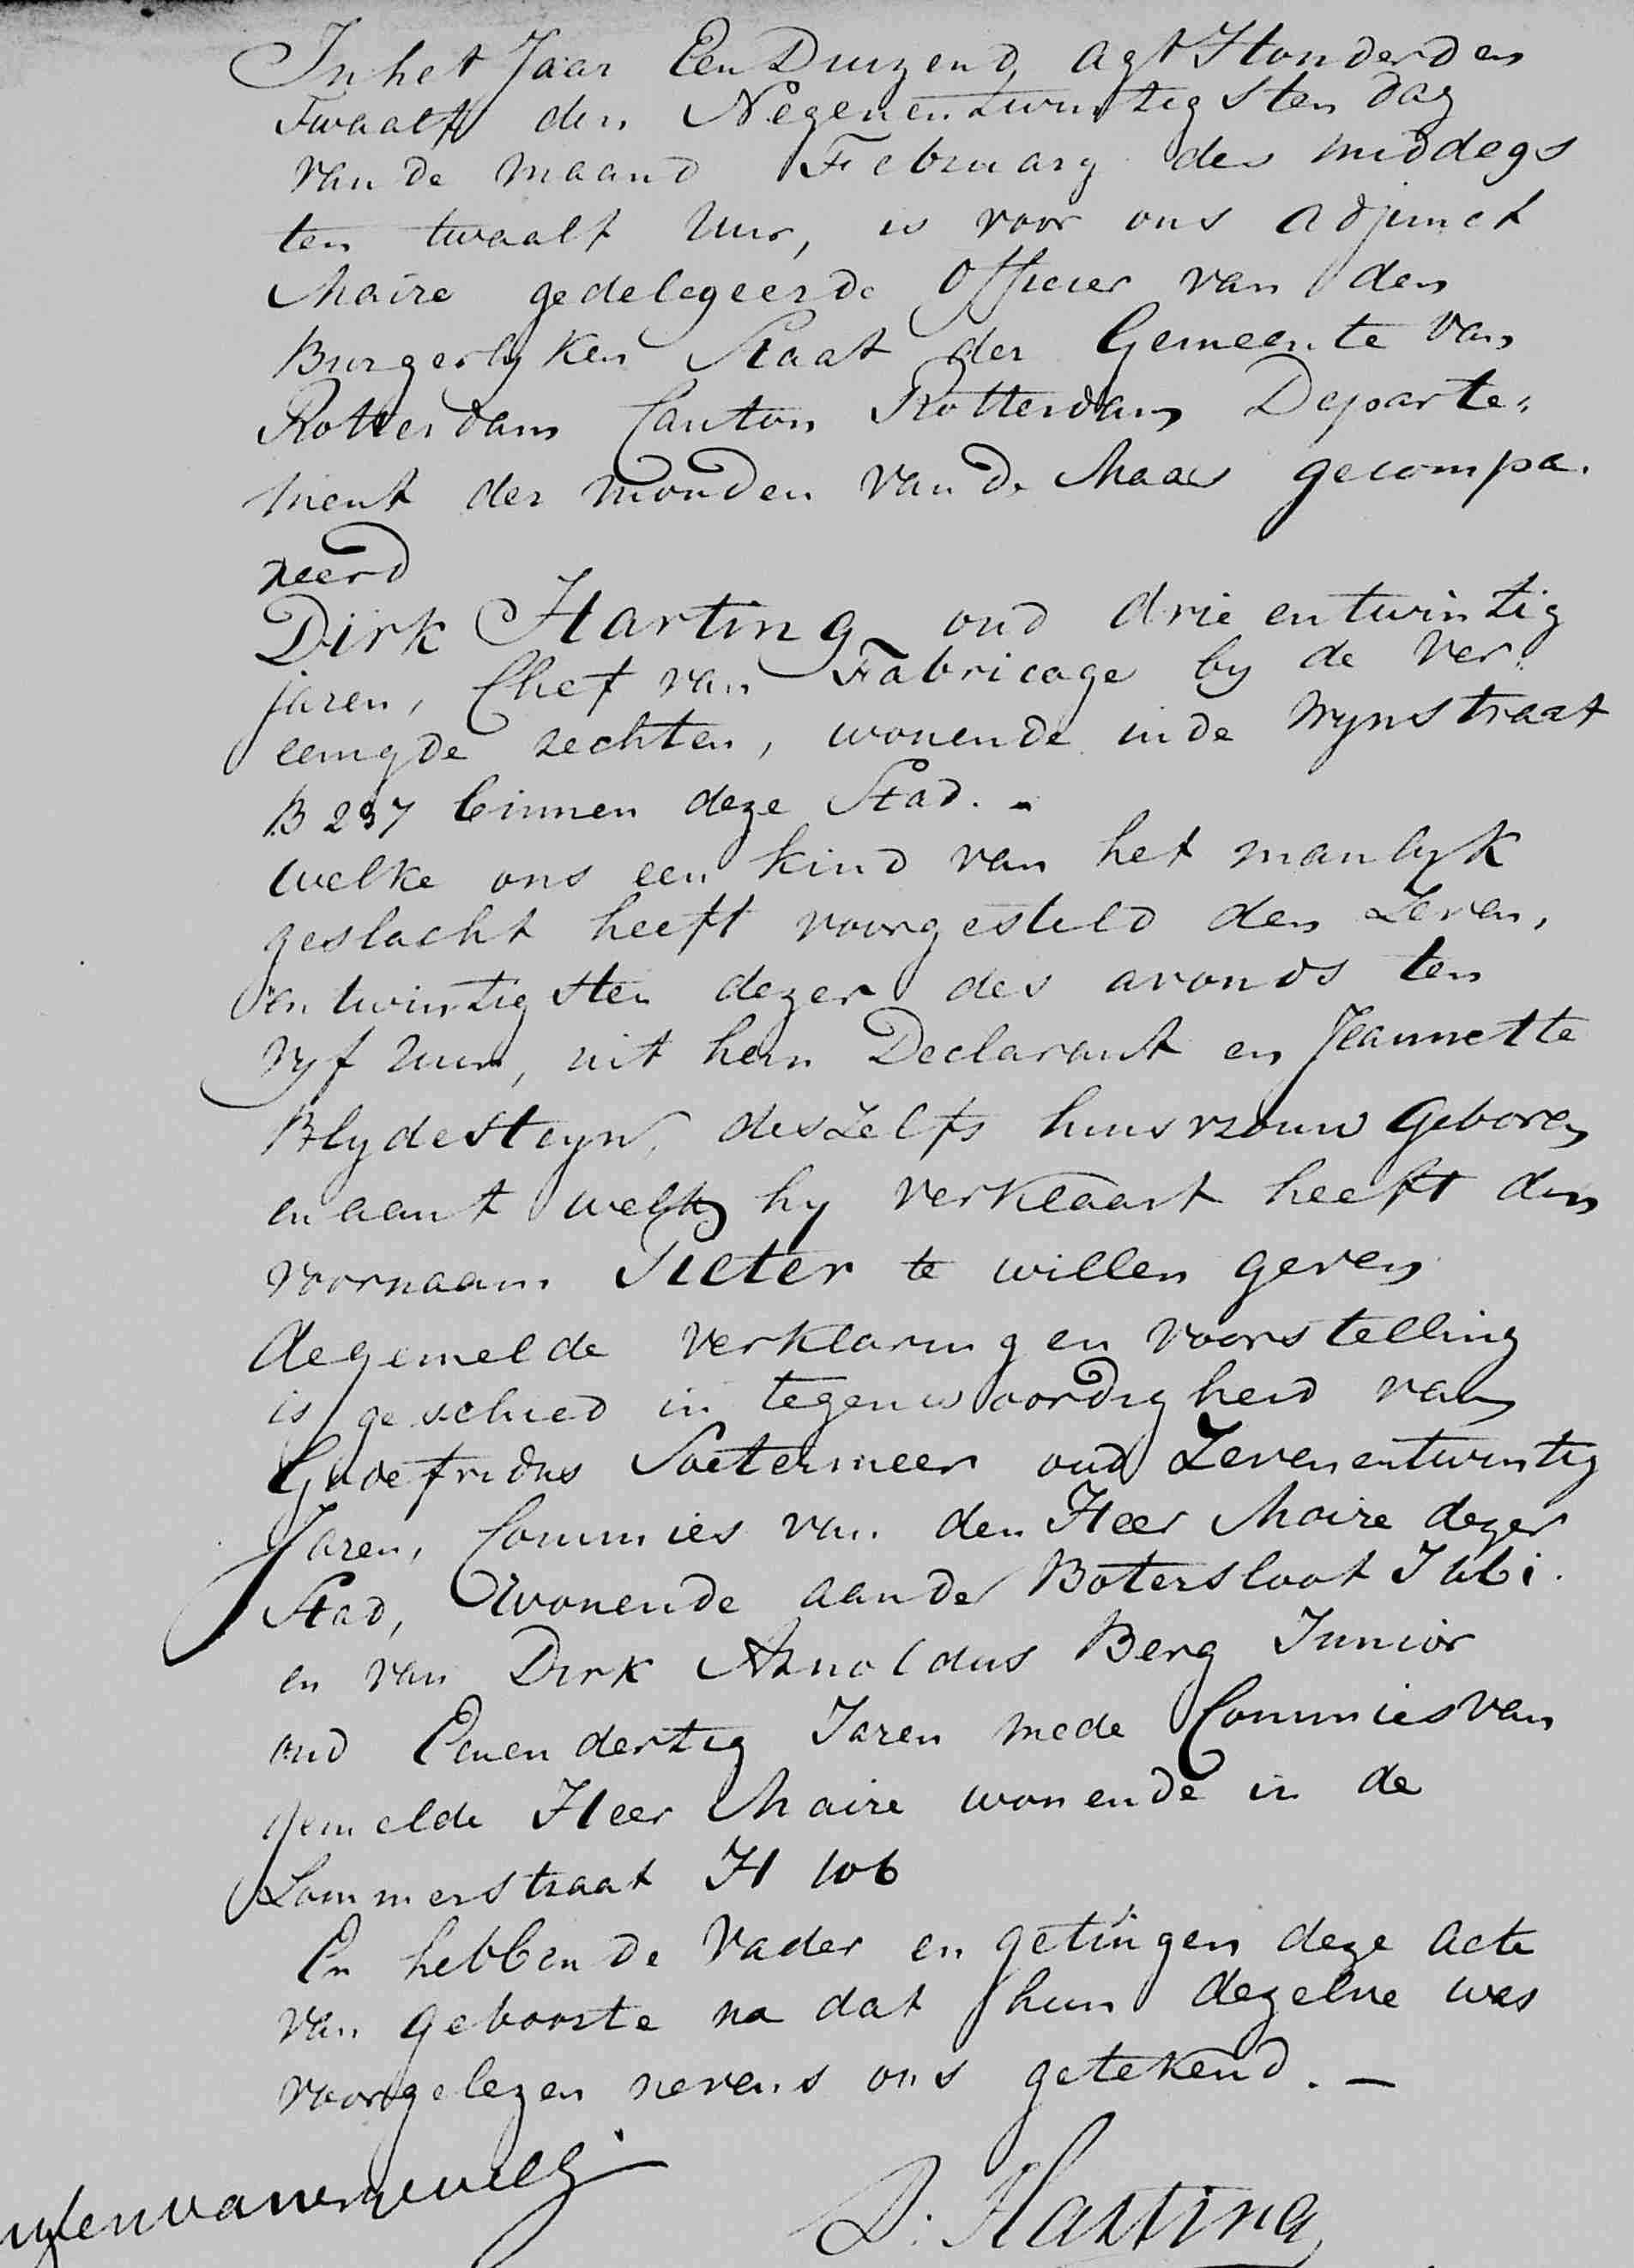 In het Jaar Een Duizend agt Honderd en
Twaalf den Negenentwintigsten dag
van de maand February des middags
ten twaalf Uur, is voor ons adjunct
Maire gedelegeerde Officier van den
Burgerlyken Staat der Gemeente van
Rotterdam Canton Rotterdam Departe„
ment der monden van de Maas gecompa.
reerd
Dirk Harting oud drie entwintig
jaren, Chef van Fabricage by de Ver„
eenigde rechten, wonende in de Wynstraat
B 237 binnen deze Stad. -
welke ons een kind van het manlyk
geslacht heeft voorgesteld den Zeven,
entwintigsten dezer des avonds ten
vyf Uur, uit hem Declarant en Jeannette
Blydesteyn, deszelfs huisvrouw Geboren
en aan't welk hy verklaart heeft den
voornaam Pieter te willen geven
de gemelde verklaring en voorstelling
is geschied in tegenwoordigheid van
Godefridus Soetermeer oud Zevenentwintig
Jaren, Commies van den Heer Maire dezer
Stad, wonende aan de Botersloot
en van Dirk Arnoldus Berg Junior
oud Eenendertig Jaren mede Commies van
gemelde Heer Maire wonende in de
Lommerstraat H 106
En hebben de Vader en getuigen deze acte
van geboorte na dat hun dezelve was
voorgelezen nevens ons getekend. -
D. Harting